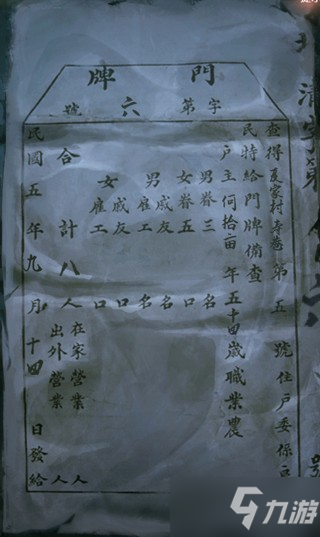 門牌
字第六號
查得夏家村寺巷第五號住戶委係良
民特給門牌備查
戶主何拾亩年五十四歲職業農
男眷三名
女眷五口
男戚友名
女戚友口
男雇工名
女雇工口
合計八人
在家營業人
出外營業人
民國五年九月十四日發給
九游